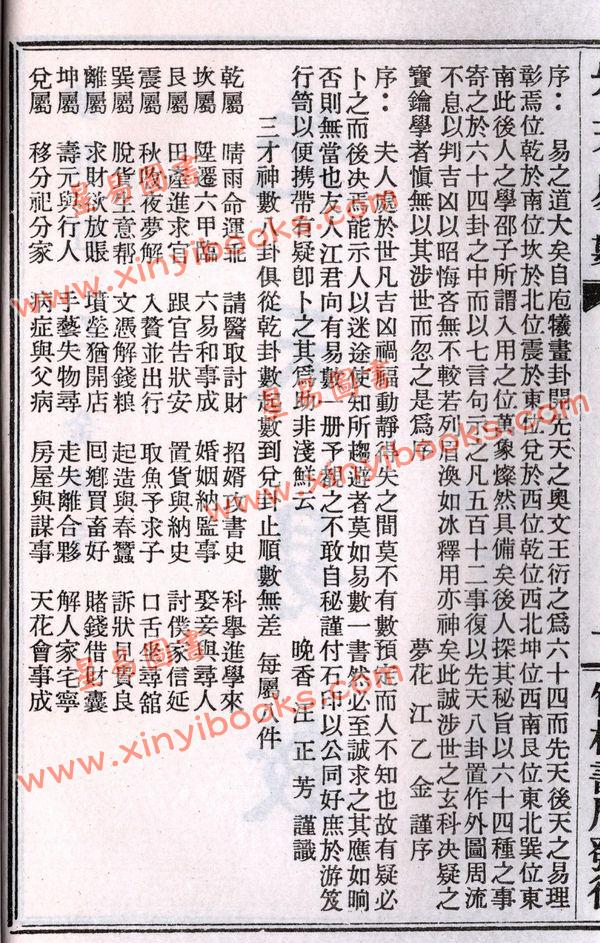 序：易之道大矣自庖犧畫卦開先天之奧文王衍之爲六十四而先天後天之易理
彰焉位乾於南位坎於北位震於東位兌於西位乾位西北坤位西南艮位東北巽位東
南此後人之學邵子所謂入用之位萬象燦然具備矣後人探其秘旨以六十四種之事
寄之於六十四卦之中而以七言句斷之凡五百十二事復以先天八卦置作外圖周流
不息以判吉凶以昭悔吝無不較若列眉渙如冰釋用亦神矣此誠涉世之玄科決疑之
寶鑰學者愼無以其涉世而忽之是爲序　夢花江乙金謹序
序：夫人處於世凡吉凶禍福動靜得失之間莫不有數預定而人不知也故有疑必
卜之而後決焉能示人以迷途使知所趨避者莫如易數一書然必至誠求之其應如晌
否則無當也友人江君向有易數一册予觀之不敢自秘謹付石印以公同好庶於游笈
行笥以便携帶有疑卽卜之其爲助非淺鮮云　晚香汪正芳謹識
三才神數八卦俱從乾卦數起數到兌卦止順數無差　每屬八件
乾屬　晴雨命運北　請醫取討財　招婿攻書史　科擧進學來
坎屬　陞遷六甲臨　六易和事成　婚姻納監事　娶妾與尋人
艮屬　田產進求官　跟官告狀安　置貨與納史　討僕家信延
震屬　秋收夜夢解　入贅並出行　取魚予求子　口舌坐尋舘
巽屬　脫貨生意帮　文憑解錢粮　起造與春蠶　訴狀見貴良
離屬　求財欲放賬　墳塋猶開店　囘鄉買畜好　賭錢借財囊
坤屬　壽元與行人　手藝失物尋　走失離合夥　解人家宅寧
兌屬　移分祀分家　病症與父病　房屋與謀事　天花會事成
星易圖書
www.xinyibooks.com
星易圖書
www.xinyibooks.com
星易圖書
www.xinyibooks.com